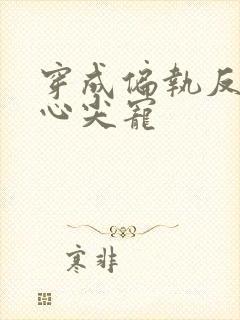 穿成偏執反
心尖寵
寒非